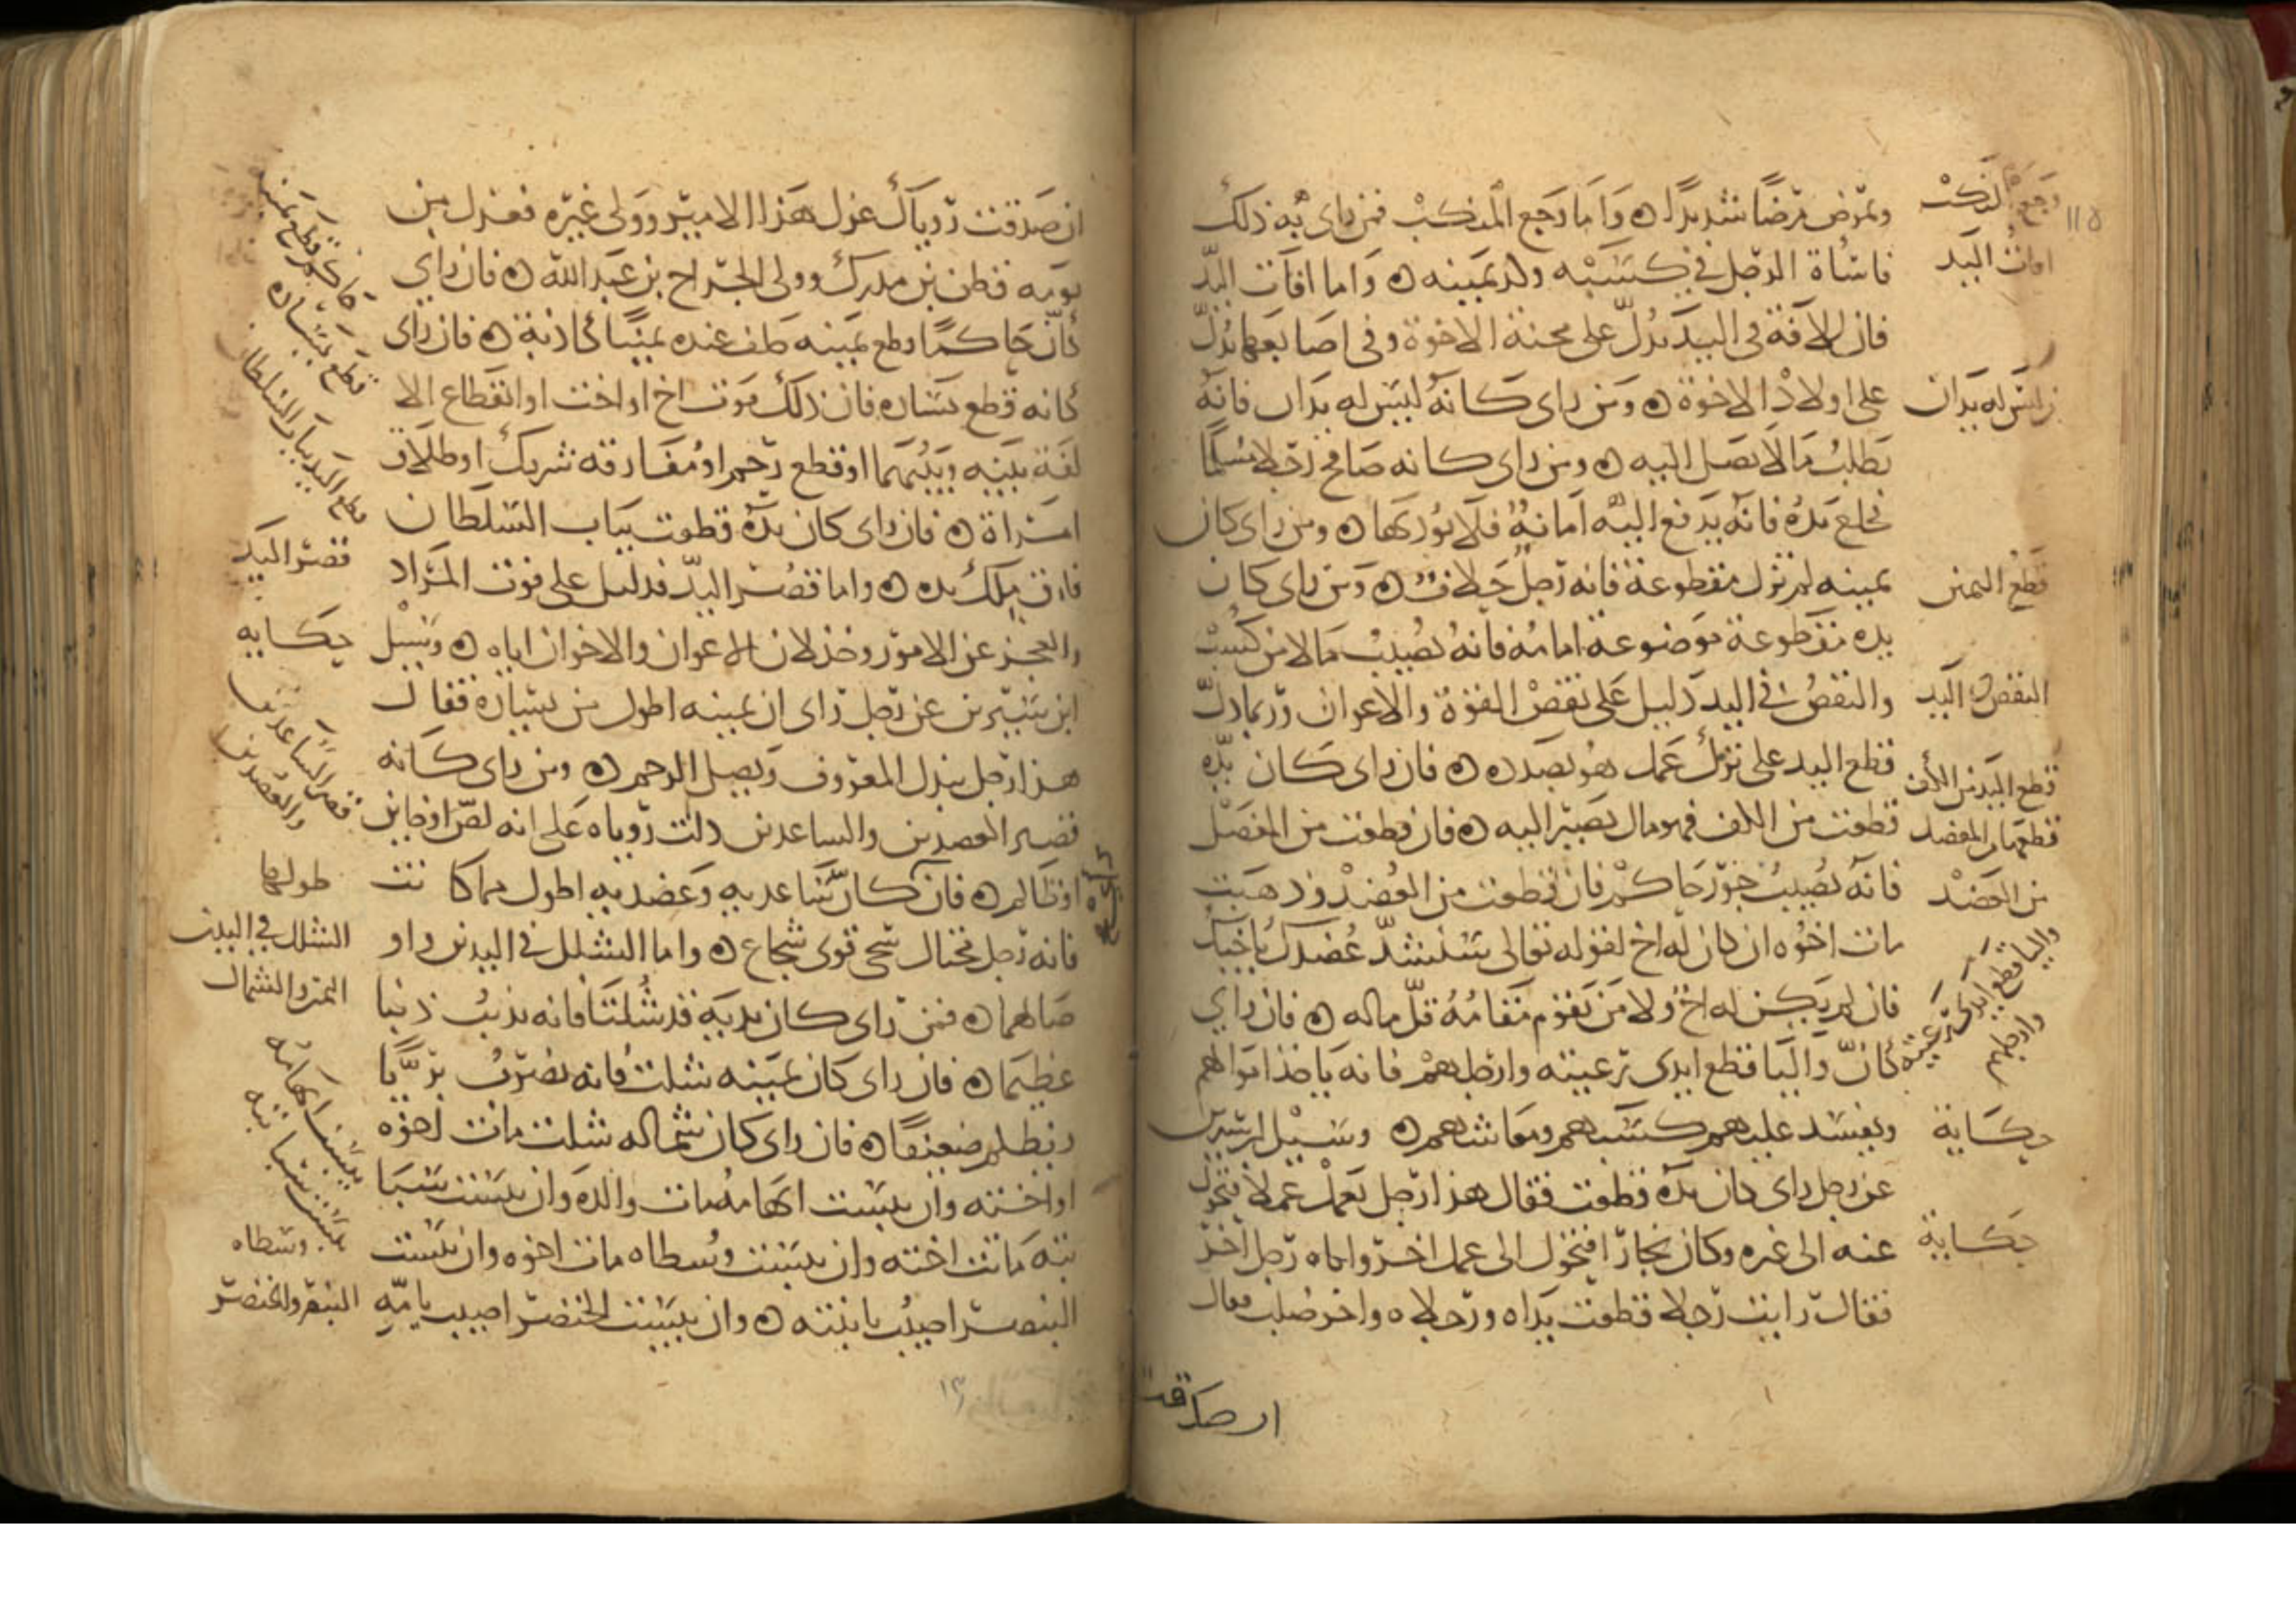 وتمرض مرضًا شديدًا ه وَاَما وَجع المنكبْ فمن راى به ذلكَ
فاساة الرجل في كسبه وكد يمينه ه وَاما افات اليد
فان الآفة في اليد تدل على محنة الاخوة وفى اصابعها تدل
على اولاد الاخوة ه ومن راى كانه ليس له يدان فانه
يطلب مالا يصل اليه ه ومن راى كانه صافح رجلا مسلما
فخلع يده فانه يدفع اليه امانة فلا يؤديها ه ومن راى كان
يمينه لم تزل مقطوعة فانه رجل حلاف ه ومن راى كان
يده مقطوعة موضوعة امامه فانه يصيب مالا من كسب
والنقص في اليد دليل على نقص القوة والاعوان وربما دل
قطع اليد على ترك عمل هو بصدده ه فان راى كان يده
قطعت من الكف فهو مال يصير اليه ه فان قطعت من المفصل
فانه يصيب جور حاكم فان قطعت من العضد وذهبت
مات اخوه ان كان له اخ لقوله تعالى سنشد عضدك باخيك
فان لم يكن له اخ ولا من يقوم مقامه قل ماله ه فان راي
كانّ واليا قطع ايدى رعيته وارجلهم فانه ياخذ اموالهم
ويفسد عليهم كسبهم ومعاشهم ه وسيل ابن سيرين
عن رجل راى كان يده قطعت فقال هذا رجل يعمل عملا فتحول
عنه الى غيره وكان نجارا فتحول الى عمل اخر واتاه رجل اخر
فقال رايت رجلا قطعت يداه ورجلاه واخر صلب فقال
ان صدقت
١١٥
وجع المنكب
افات اليد
من ليس له يدان
قطع اليمين
النقص في اليد
قطع اليد من الكف
قطعها من المفصل
من العضد
واليا قطع ايدى رعيته
وارجلهم
حكاية
حكاية
ان صدقت رؤياك عزل هذا الامير وولى غيره فعزل من
يومه قطن بن مدرك وولى الجراح بن عبد الله ه فان راي
كأنّ حاكمًا قطع يمينه حلف عنده يمينًا كاذبة ه فان راى
كانه قطع يساره فان ذلك موت اخ او اخت او انقطاع الا
لفة بينه وبينهما او قطع رحم او مفارقة شريك او طلاق
امراة ه فان راى كان يده قطعت بباب السلطان
فارق ملك يده ه واما قصر اليد فدليل على فوت المراد
والعجز عن الامور وخذلان الاعوان والاخوان اياه ه وسيل
ابن سيرين عن رجل راى ان يمينه اطول من يساره فقال
هذا رجل يبذل المعروف ويصل الرحم ه ومن راى كانه
قصير العضدين والساعدين دلت رؤياه على انه لص او خاين
او ظالم ه فان كان ساعديه وعضديه اطول مما كانت
فانه رجل محتال سخى قوى شجاع ه واما الشلل في اليدين واو
صالهما ه فمن راى كان يديه قد شلتا فانه يذنب ذنبا
عظيما ه فان راى كان يمينه شلت فانه يضرب بريًّا
ويظلم ضعيفًا ه فان راى كان شماله شلت مات اخوه
او اخته وان يبست ابهامه مات والده وان يبست سبا
بته ماتت اخته وان يبست وسطاه مات اخوه وان يبست
البنصر اصيب بابنته ه وان يبست الخنصر اصيب بامّه
كانه قطع يمينه
قطع يساره
قطع اليد بباب السلطان
قصر اليد
حكايه
قصر الساعدين
والعضدين
طولهما
الشلل في اليدين
اليمين والشمال
يبست ابهامه
يبست سبابته
وسطاه
البنصر والخنصر